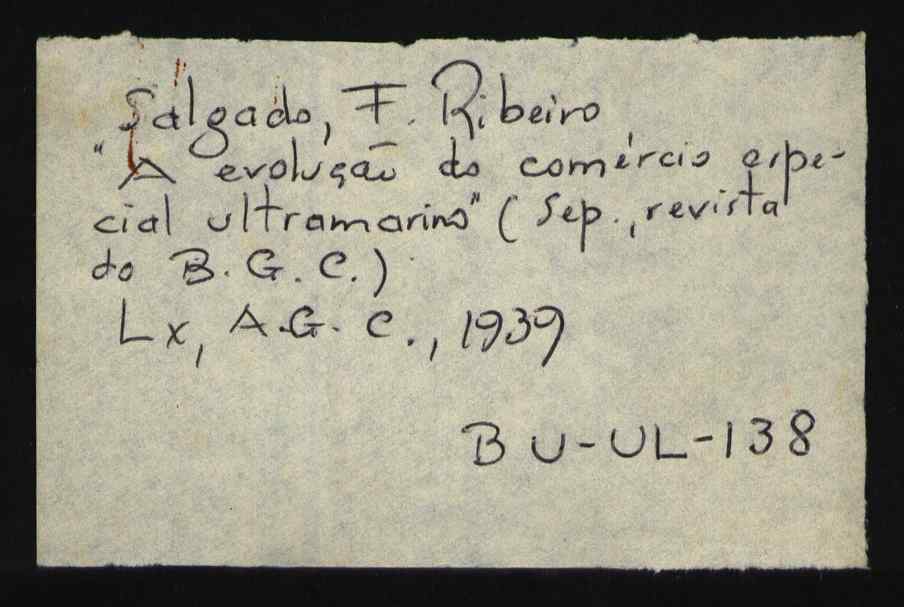 Salgado, F. Ribeiro
"A evolução do comércio espe-
cial ultramarino" (Sep., revista
do B. G. C.)
Lx, A.G. C., 1939
BU-UL-138